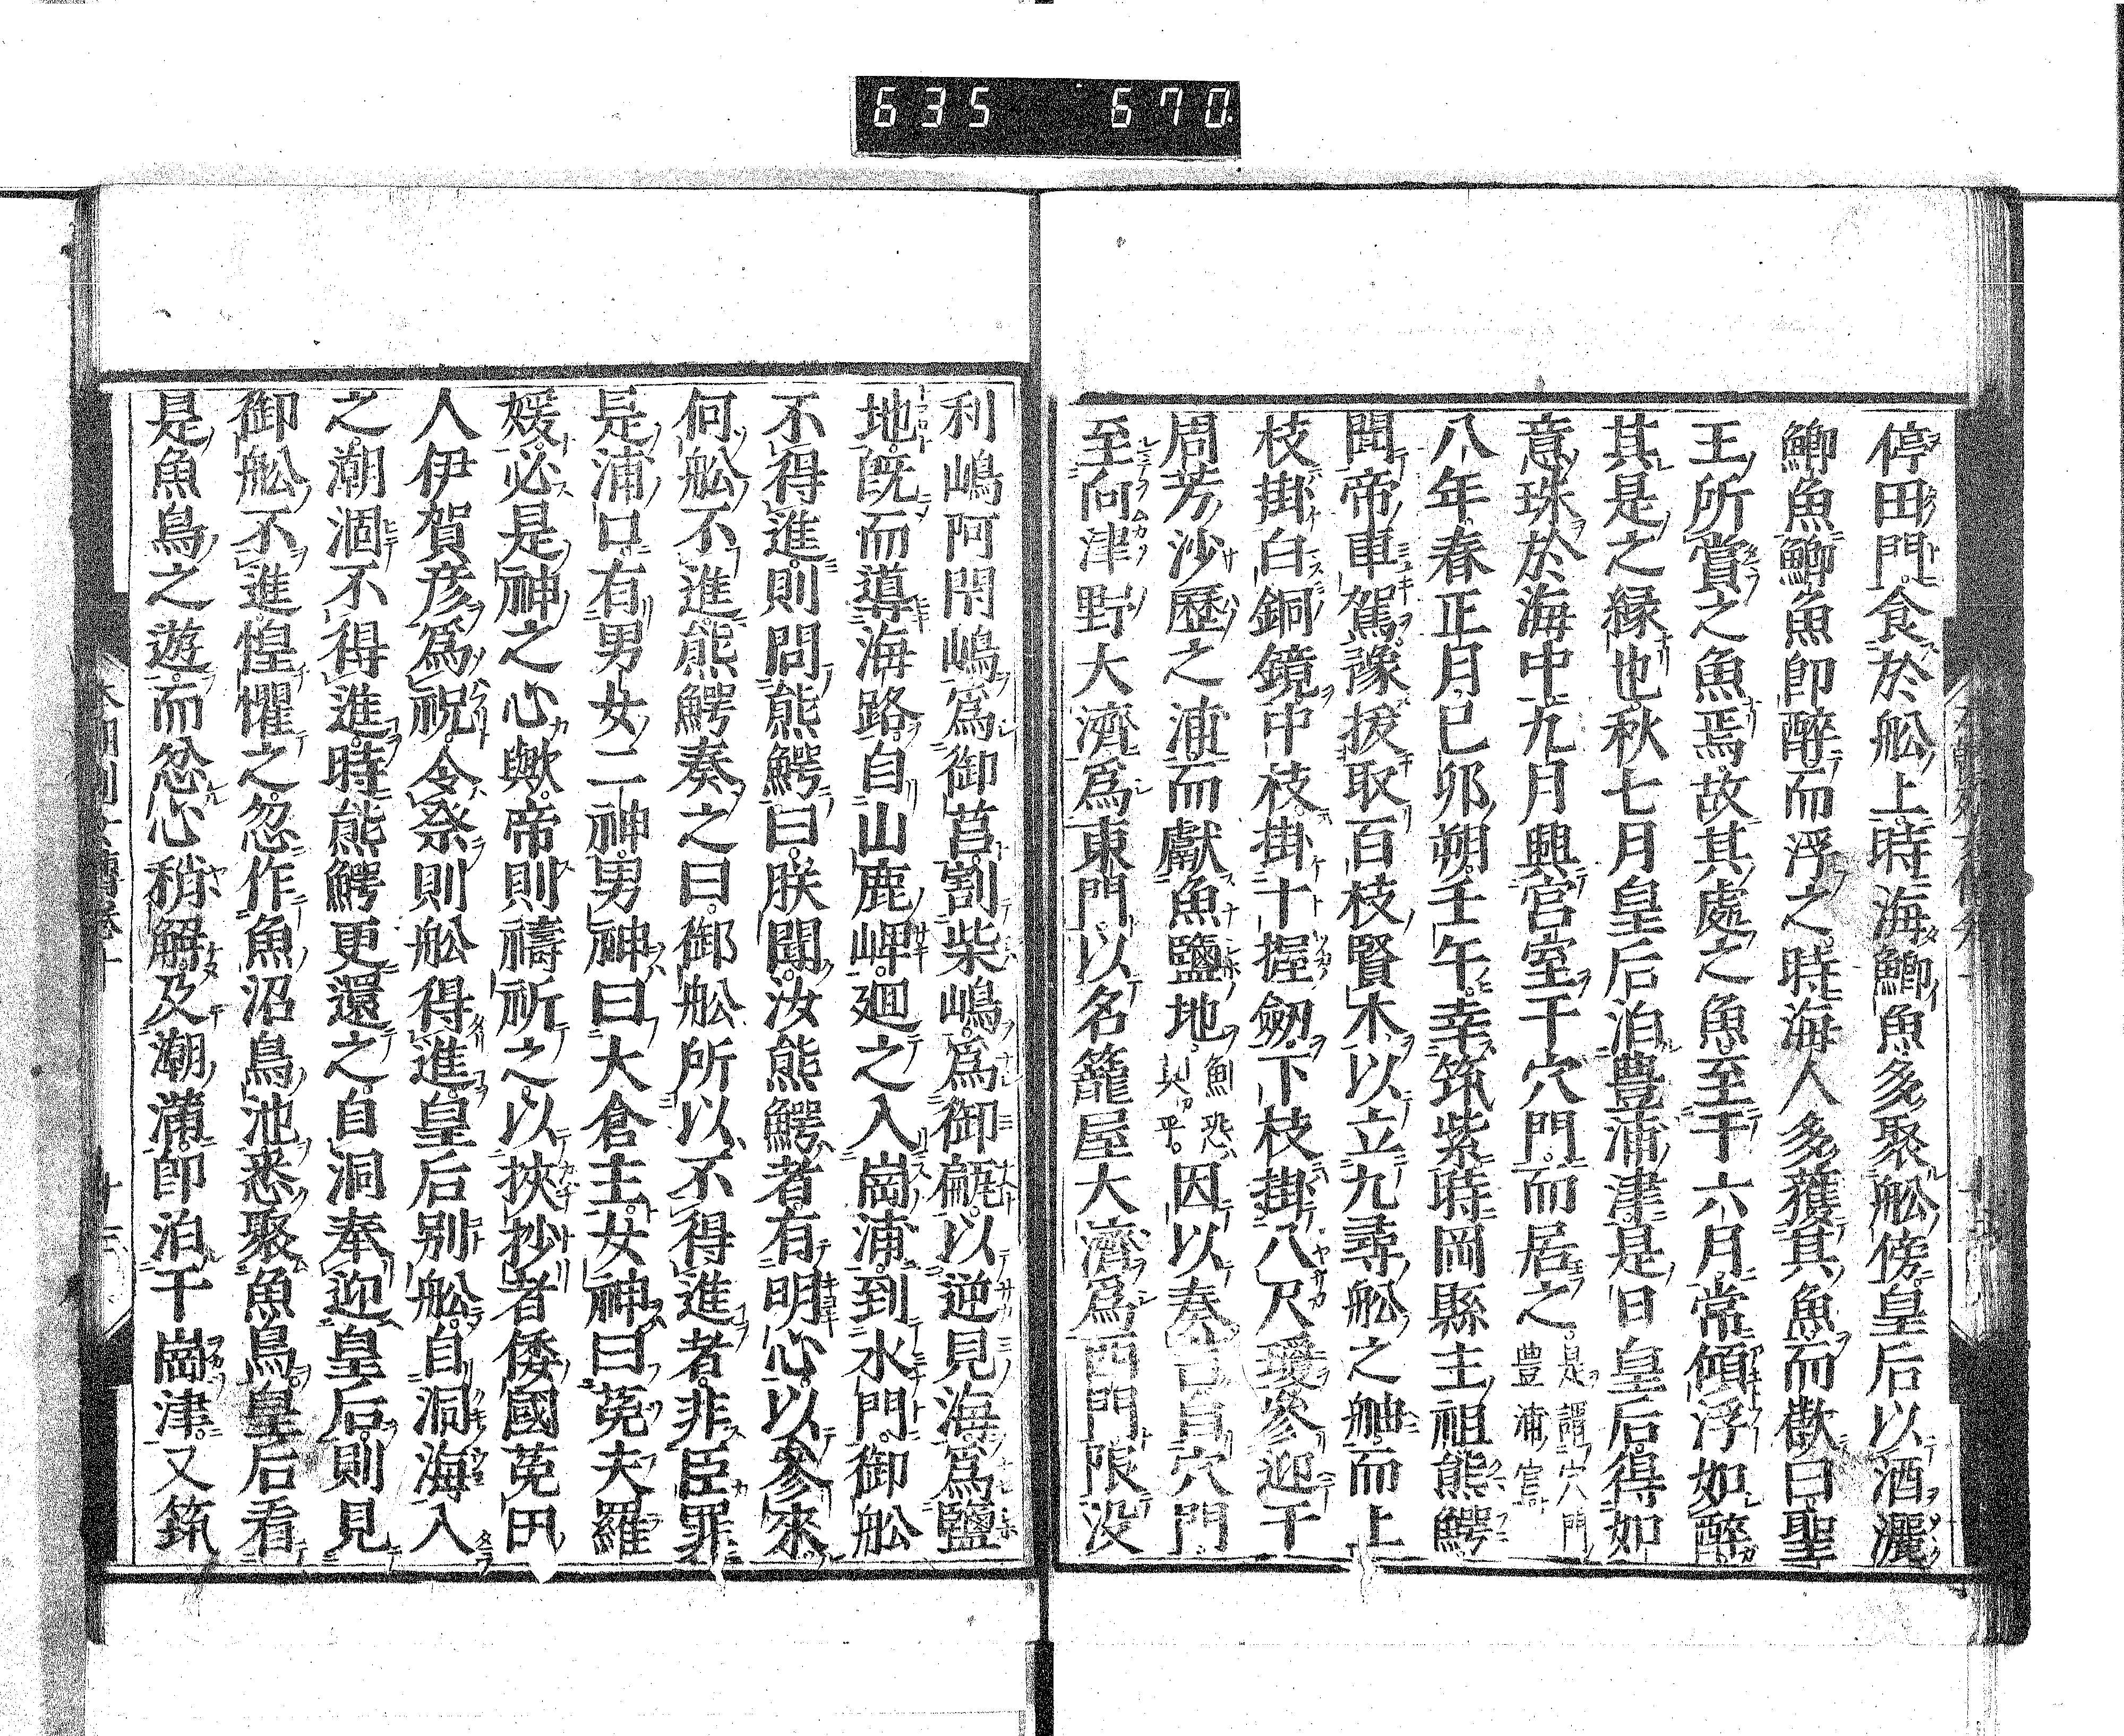 635 670
停田門食於舩上時海鯽魚多聚舩傍皇后以酒灑
鯽魚鯽魚卽醉而浮之時海人多獲其魚而歡曰聖
王所賞之魚焉故其處之魚至于六月常傾浮如醉
其是之縁也秋七月皇后泊豊浦津是日皇后得如
意珠於海中九月興宮室于穴門而居之是謂穴門豊浦宮
八年春正月已卯朔壬午幸筑紫時岡縣主祖熊鰐
聞帝車駕豫拔取百枝賢木以立九尋舩之舳而上
枝掛白銅鏡中枝掛十握劒下枝掛八尺瓊參迎于
周芳沙麼之浦而獻魚鹽地因以奏言自穴門
至向津野大濟爲東門以名籠屋大濟爲西門限没
利嶋阿閇嶋爲御莒割柴嶋爲御甂以逆見海爲鹽
地既而導海路自山鹿岬廻之入崗浦到水門御舩
不得進則問熊鰐曰朕聞汝熊鰐者有明心以參來
何舩不進熊鰐奏之曰御舩所以不得進者非臣罪
是浦口有男女二神男神曰大倉主女神曰菟夫羅
媛必是神之心歟帝則禱祈之以挾抄者倭國菟田
人伊賀彦爲祝令祭則舩得進皇后別舩自洞海入
之潮涸不得進時熊鰐更還之自洞奉迎皇后則見
御舩不進惶懼之忽作魚沼鳥池悉聚魚鳥皇后看
是魚鳥之遊而忿心稍解及潮滿卽泊于崗津又筑